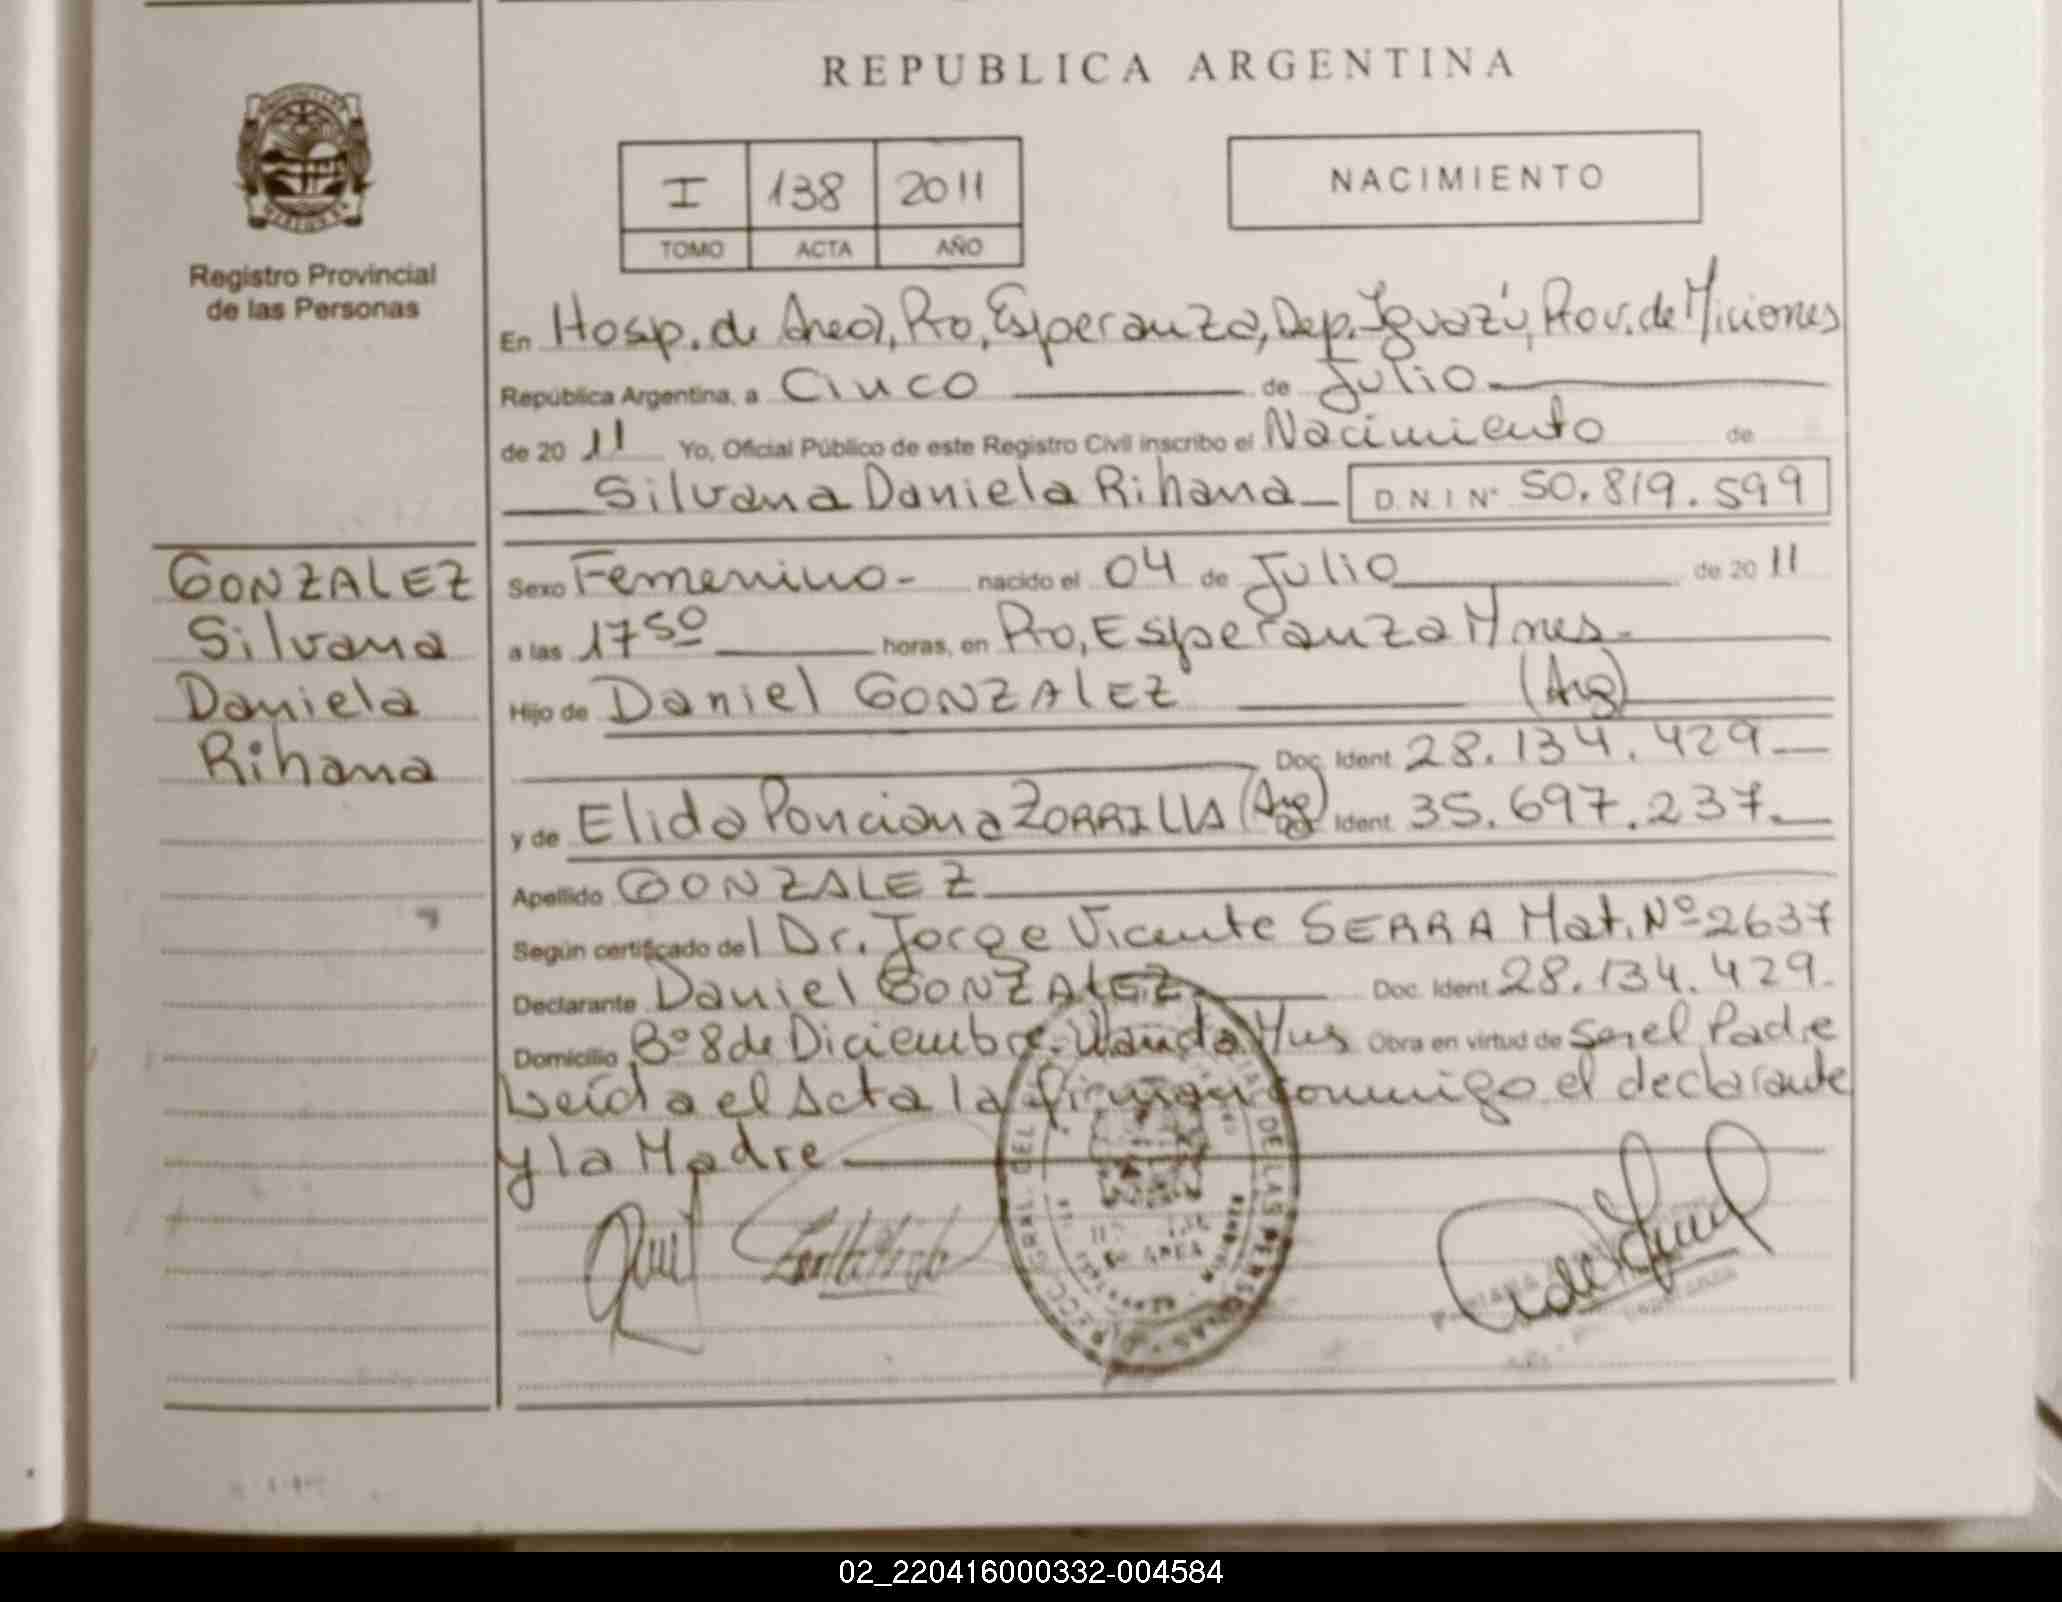 REPUBLICA ARGENTINA
I 138 2011
TOMO ACTA AÑO
NACIMIENTO
Registro Provincial
de las Personas
En Hosp. de Area, Pto, Esperanza, Dep. Iguazú, Prov. de Miciones
República Argentina, a Cinco de Julio
de 20 11 Yo, Oficial Público de este Registro Civil inscribo el Nacimiento de
Silvana Daniela Rihana D.N.I Nº 50.819.599
GONZALEZ
Silvana
Daniela
Rihana
Sexo Femenino - nacido el 04 de Julio de 20 11
a las 17 50 horas, en Pto, Esperanza Mnes.
Hijo de Daniel GONZALEZ (Arg)
Doc. Ident 28.134.429
y de Elida Ponciana ZORRILLA (Arg) Ident 35.697.237
Apellido GONZALEZ
Según certificado del Dr. Jorge Vicente SERRA Mat. Nº 2637
Declarante Daniel GONZALEZ Doc. Ident 28.134.429.
Domicilio Bº 8 de Diciembre. Wanda. Mns Obra en virtud de Ser el Padre
Leída el Acta la firman conmigo el declarante
y la Madre
02_220416000332-004584